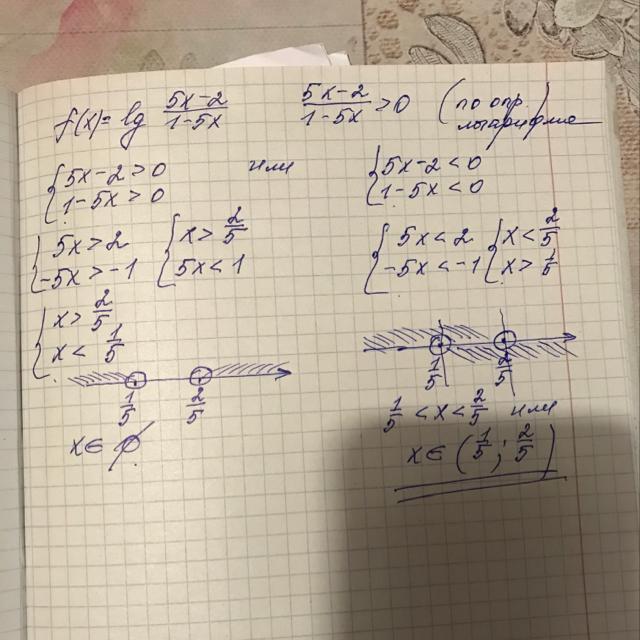 f(x)= lg (5x-2)/(1-5x)   (5x-2)/(1-5x) >0   (по опр. логарифма)
{5x-2>0   или   {5x-2<0
{1-5x>0   {1-5x<0
{5x>2   {x>2/5   {5x<2   {x<2/5
{-5x>-1   {5x<1   {-5x<-1   {x>1/5
{x>2/5
{x<1/5
1/5   2/5   1/5   2/5
1/5 <x<2/5   или
x∈ ∅   x∈ (1/5; 2/5)